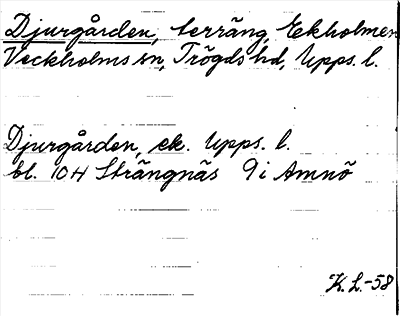 Djurgården, terräng, Ekholmen
Veckholms sn, Trögds hd, Upps. l.
Djurgården, ek. Upps. l.
bl. 104 Strängnäs 9 i Arnö
K. L.-58